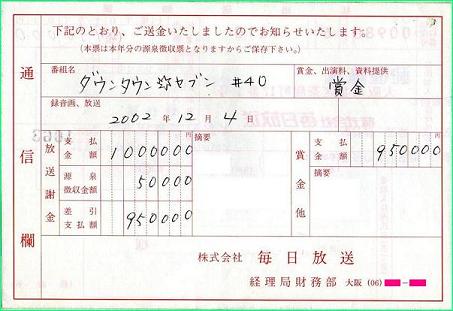 下記のとおり、ご送金いたしましたのでお知らせいたします。
(本票は本年分の源泉徴収票となりますからご保存下さい。)
通信欄
番組名
ダウンタウン汁セブン #40
賞金、出演料、資料提供
賞金
録音画、放送
2002 年 12 月 4 日
放送謝金
支払金額 1000000 円
源泉徴収金額 50000
差引支払額 950000
摘要
賞金他
支払金額 950000 円
摘要
株式会社 毎日放送
経理局財務部 大阪 (06)